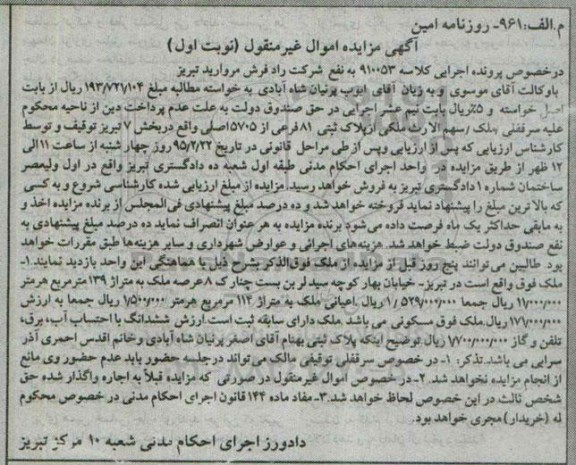 م.الف:۹۶۱- روزنامه امین
آگهی مزایده اموال غیرمنقول (نوبت اول)
درخصوص پرونده اجرایی کلاسه ۹۱۰۰۵۳ به نفع شرکت راد فرش مروارید تبریز
باوکالت آقای موسوی و به زیان آقای ایوب پرنیان شاه آبادی به خواسته مطالبه مبلغ ۱۹۳/۷۲۱/۱۰۴ ریال از بابت
اصل خواسته و ۵٪ریال بابت نیم عشر اجرایی در حق صندوق دولت به علت عدم پرداخت دین از ناحیه محکوم
علیه سرقفلی /ملک /سهم الارث ملکی ازپلاک ثبتی ۸۱ فرعی از ۵۷۰۵اصلی واقع دربخش ۷ تبریز توقیف و توسط
کارشناس ارزیابی که پس از ارزیابی وپس از طی مراحل قانونی در تاریخ ۹۵/۲/۲۲ روز چهار شنبه از ساعت ۱۱الی
۱۲ ظهر از طریق مزایده در واحد اجرای احکام مدنی طبقه اول شعبه ده دادگستری تبریز واقع در اول ولیعصر
ساختمان شماره ۱ دادگستری تبریز به فروش خواهد رسید.مزایده از مبلغ ارزیابی شده کارشناسی شروع و به کسی
که بالا ترین مبلغ را پیشنهاد نماید فروخته خواهد شد و ده درصد مبلغ پیشنهادی فی المجلس از برنده مزایده اخذ و
به مابقی حداکثر یک ماه فرصت داده می شود برنده مزایده به هر عنوان انصراف نماید ده درصد مبلغ پیشنهادی به
نفع صندوق دولت ضبط خواهد شد. هزینه‌های اجرائی و عوارض شهرداری و سایر هزینه‌ها طبق مقررات خواهد
بود. طالبین می توانند پنج روز قبل از مزایده از ملک فوق الذکر بشرح ذیل با هماهنگی این واحد بازدید نمایند.۱-
ملک فوق واقع است در تبریز- خیابان بهار کوچه سید لر بن بست چنارک ۸عرصه ملک به متراژ ۱۳۹مترمربع هرمتر
۱۱/۰۰۰/۰۰۰ ریال جمعا ۱/۵۲۹/۰۰۰/۰۰۰ ریال .اعیانی ملک به متراژ ۱۱۴ مرمربع هرمتر ۱/۵۰۰/۰۰۰ ریال جمعا به ارزش
۱۷۱/۰۰۰/۰۰۰ ریال ملک فوق مسکونی می باشد .ملک دارای سابقه ثبت است.ارزش ششدانگ با احتساب آب، برق،
تلفن و گاز ۱/۷۰۰/۰۰۰/۰۰۰ ریال.توضیح اینکه پلاک ثبتی بهنام آقای اصغر پرنیان شاه آبادی وخانم اقدس احمری آذر
سرایی می باشد.تذکر: ۱- در خصوص سرقفلی توقیفی مالک می تواند درجلسه حضور یابد عدم حضور وی مانع
از انجام مزایده نخواهد شد. ۲- در خصوص اموال غیرمنقول در صورتی که مزایده قبلاً به اجاره واگذار شده حق
شخص ثالث در این خصوص لحاظ خواهد شد.۳-مفاد ماده ۱۴۴ قانون اجرای احکام مدنی در خصوص محکوم
له (خریدار) مجری خواهد بود.
دادورز اجرای احکام مدنی شعبه ۱۰ مرکز تبریز